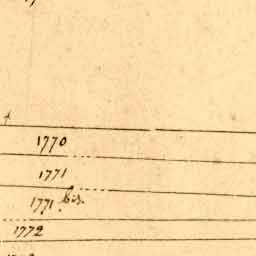 1770
1771
1771 bis.
1772